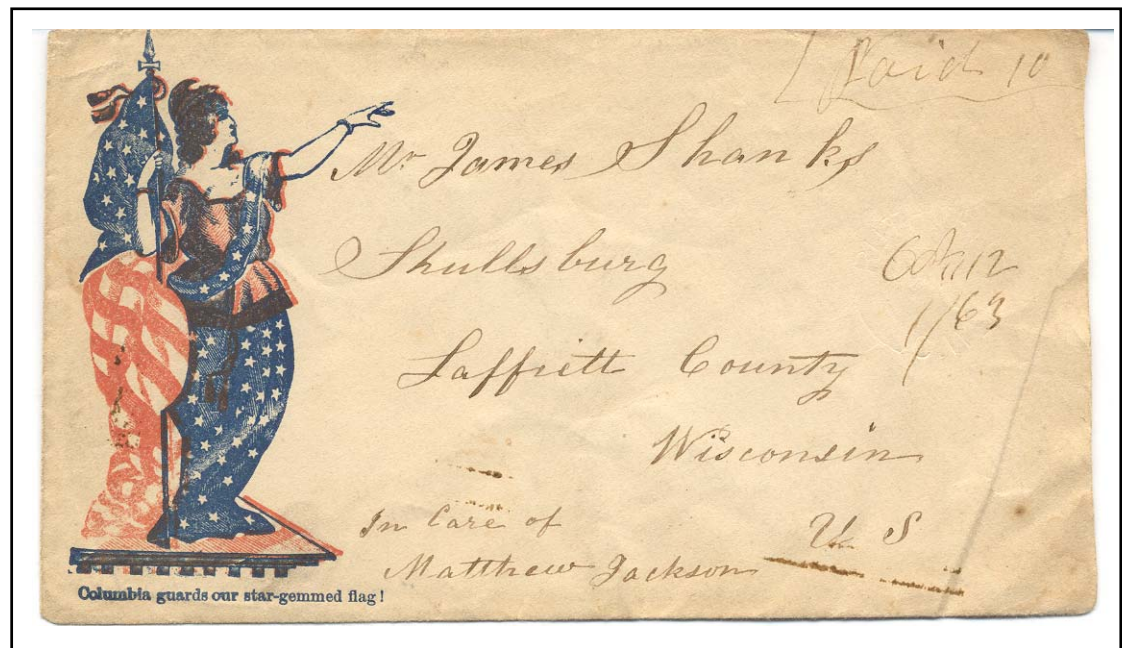 Paid 10
Mr James Shanks
Shullsburg
1/63
Laffiett County
Wisconsin
In Care of
U S
Matthew Jackson
Columbia guards our star-gemmed flag!